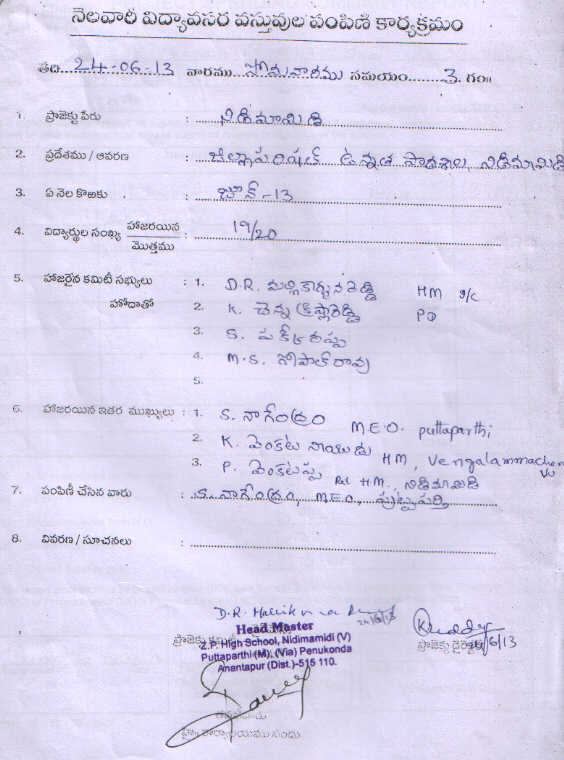 నెలవారీ విద్యావసర వస్తువుల పంపిణి కార్యక్రమం
తేది. 24-06-13 వారము.. సోమవారము సమయం........3. గం॥
1. ప్రాజెక్టు పేరు : నిడిమామిడి
2. ప్రదేశము / ఆవరణ : జిల్లాపరిషత్ ఉన్నత పాఠశాల, నిడిమామిడి
3. ఏ నెల కొఱకు : జూన్-13
4. విద్యార్థుల సంఖ్య హాజరయిన / మొత్తము : 19/20
5. హాజరైన కమిటీ సభ్యులు : 1. D.R. మల్లికార్జునరెడ్డి HM I/c
హోదాతో 2. K. చెన్నక్రిష్ణారెడ్డి PD
3. S. పక్కీరప్ప
4. M.S. గోపాల్ రావు
5.
6. హాజరయిన ఇతర ముఖ్యులు : 1. S. నాగేంద్రం M.E.O. puttaparthi
2. K. వెంకట నాయుడు HM, Vengalammacheruvu
3. P. వెంకటప్ప Rtd HM., నిడిమామిడి
7. పంపిణీ చేసిన వారు : S. నాగేంద్రం, M.E.O, పుట్టపర్తి
8. వివరణ / సూచనలు :
D.R. Mallikarjuna Reddy
24/6/13
Head Master
Z.P. High School, Nidimamidi (V)
Puttaparthi (M), (Via) Penukonda
Anantapur (Dist.)-515 110.
ప్రాజెక్టు కమిటీ
KReddy
ప్రాజెక్టు డైరెక్టరు
24/6/13